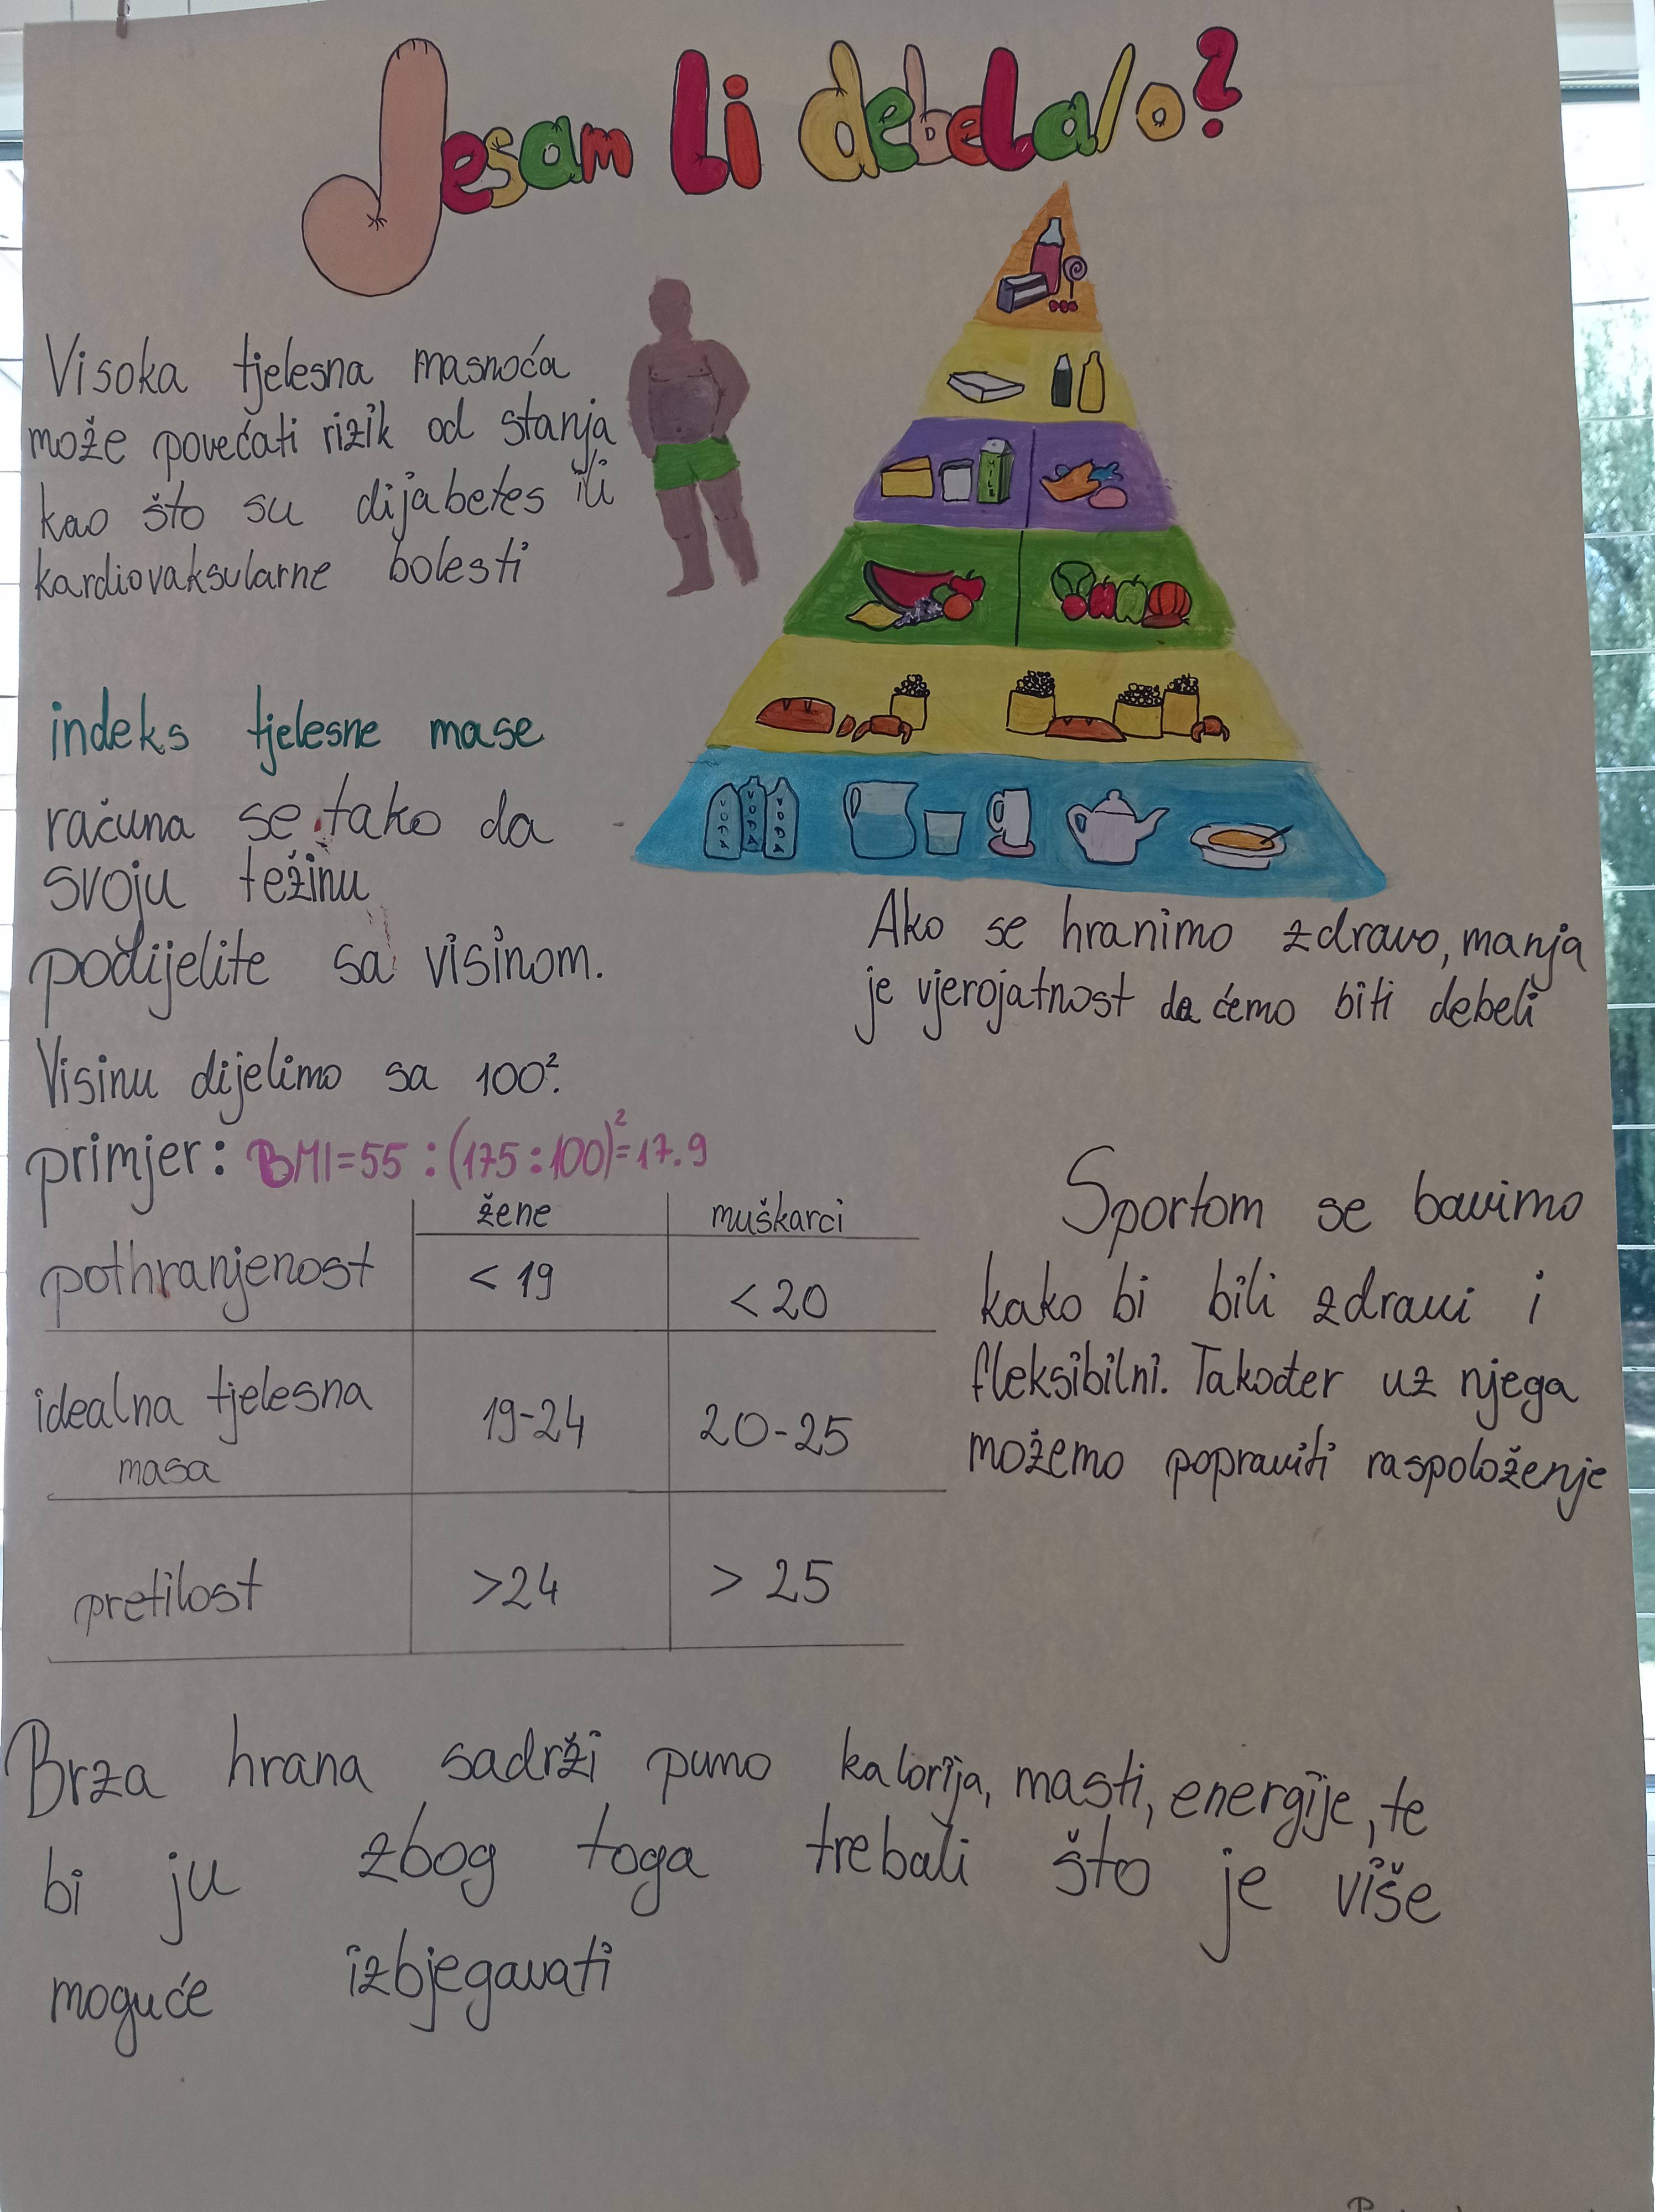 Jesam li debela/o?
Visoka tjelesna masnoća
može povećati rizik od stanja
kao što su dijabetes ili
kardiovaksularne bolesti
MILK
VODA VODA VODA
indeks tjelesne mase
računa se tako da
svoju težinu
podijelite sa visinom.
Visinu dijelimo sa 100².
primjer: BMI=55 : (175:100)²=17.9
Ako se hranimo zdravo, manja
je vjerojatnost da ćemo biti debeli
žene muškarci
pothranjenost <19 <20
idealna tjelesna
masa 19-24 20-25
pretilost >24 >25
Sportom se bavimo
kako bi bili zdravi i
fleksibilni. Također uz njega
možemo popraviti raspoloženje
Brza hrana sadrži puno kalorija, masti, energije, te
bi ju zbog toga trebali što je više
moguće izbjegavati